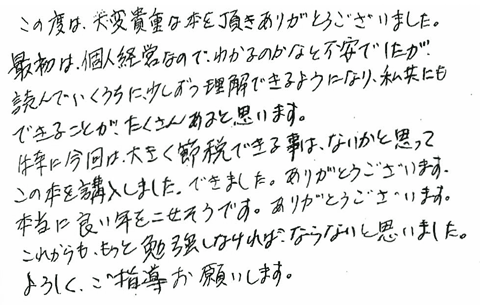 この度は、大変貴重な本を頂きありがとうございました。
最初は、個人経営なので、わかるのかなと不安でしたが、
読んでいくうちに、少しずつ理解できるようになり、私共にも
できることが、たくさんあると思います。
特に今回は、大きく節税できる事は、ないかと思って
この本を講入しました。できました。ありがとうございます。
本当に良い年をこせそうです。ありがとうございます。
これからも、もっと勉強しなければ、ならないと思いました。
よろしく、ご指導お願いします。